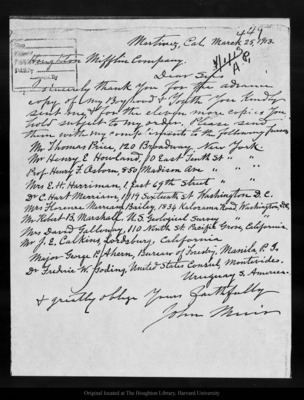 Martinez, Cal. March 25, 1913.
Houghton Mifflin Company.
Dear Sirs
I sincerely thank you for the advance
copy of my Boyhood & Youth you kindly
sent me & for the eleven more copies you
hold subject to my order. Please send
them with my compliments to the following friends
Mr Thomas Price, 120 Broadway, New York
Mr Henry E Howland, 10 East Tenth St " "
Prof. Henry F. Osborn, 850 Madison Ave " "
Mrs E. H. Harriman, 1 East 69th Street " "
Dr C. Hart Merriam, 1919 Sixteenth St Washington D.C.
Mrs Florence Merriam Bailey, 1834 Kalorama Road, Washington, D.C.
Mr Robert B. Marshall, U.S. Geological Survey
Mrs David Galloway, 110 Ninth St Pacific Grove, California
Mr J. E. Calkins, Lordsburg, California
Major George P. Ahern, Bureau of Forestry, Manila, P.I.
Dr Fredric W. Goding, United States Consul, Montevideo.
Uruguay S. America.
& greatly oblige Yours faithfully
John Muir
Original located at The Houghton Library, Harvard University